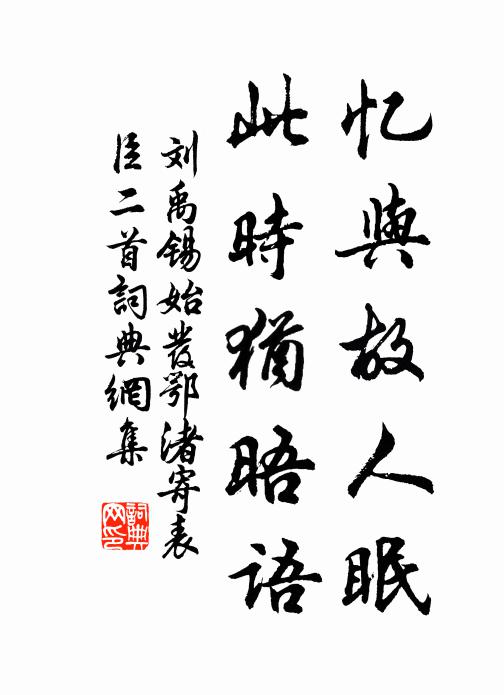 忆與故人眠
此時猶晤语
刘禹锡始發鄂渚寄表
臣二首詞典網集
詞典网印